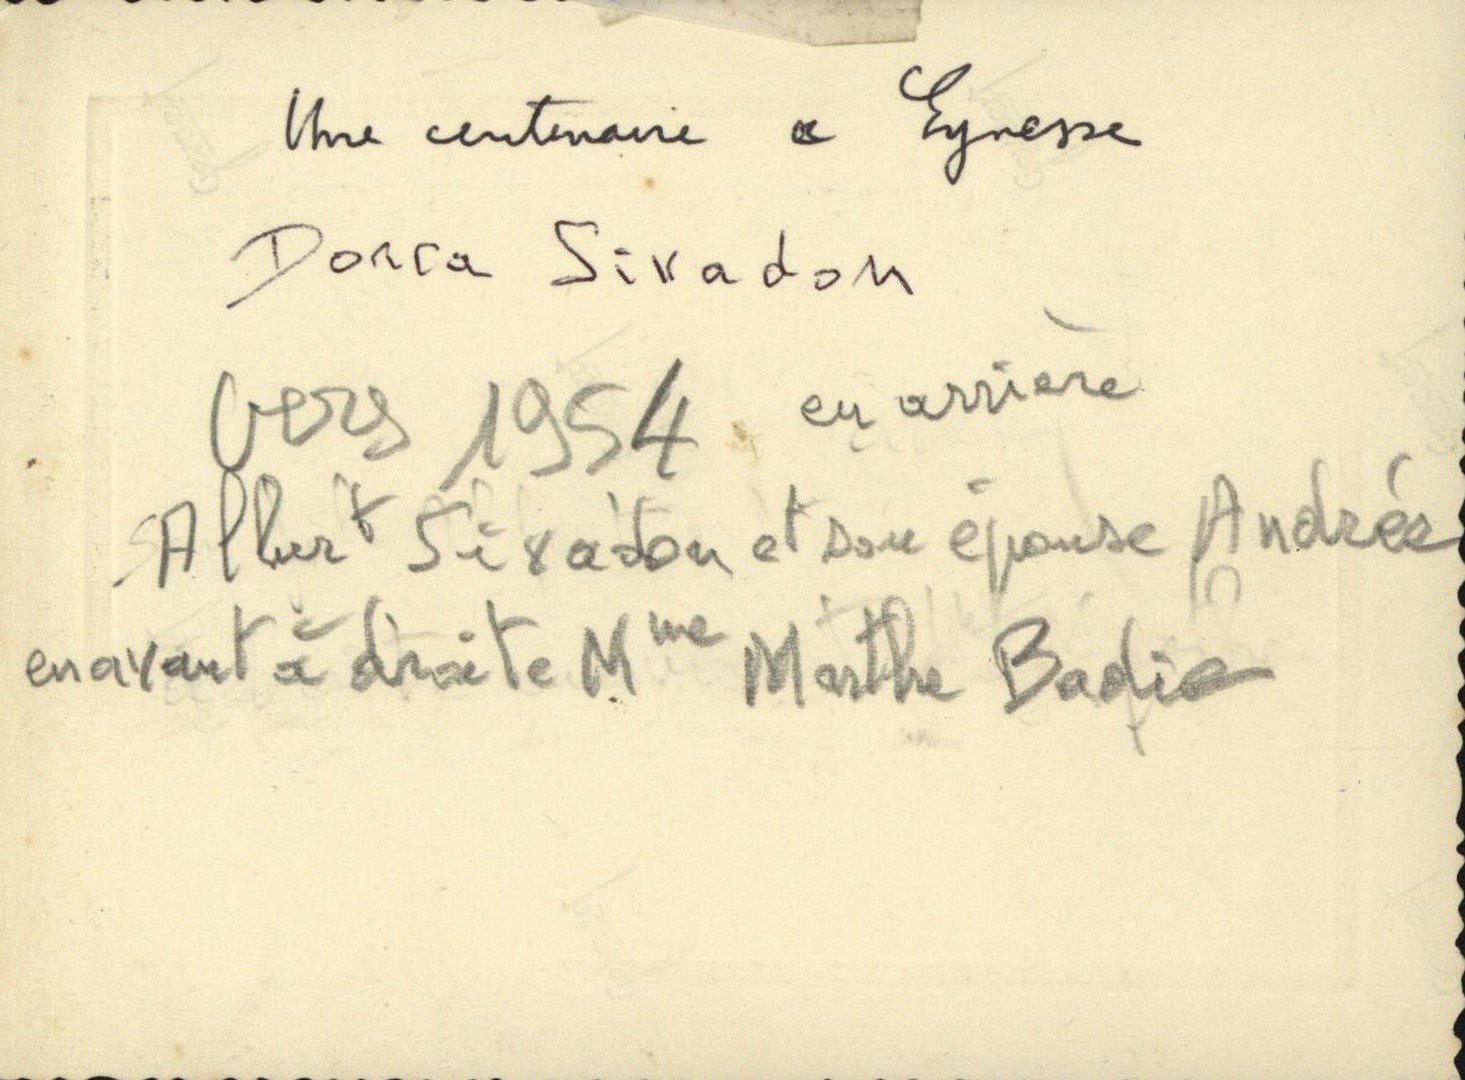 Une centenaire a Eynesse
Dorca Sivadon
vers 1954 en arrière
Albert Sivadon et son épouse Andrée
en avant à droite Mme Marthe Badie